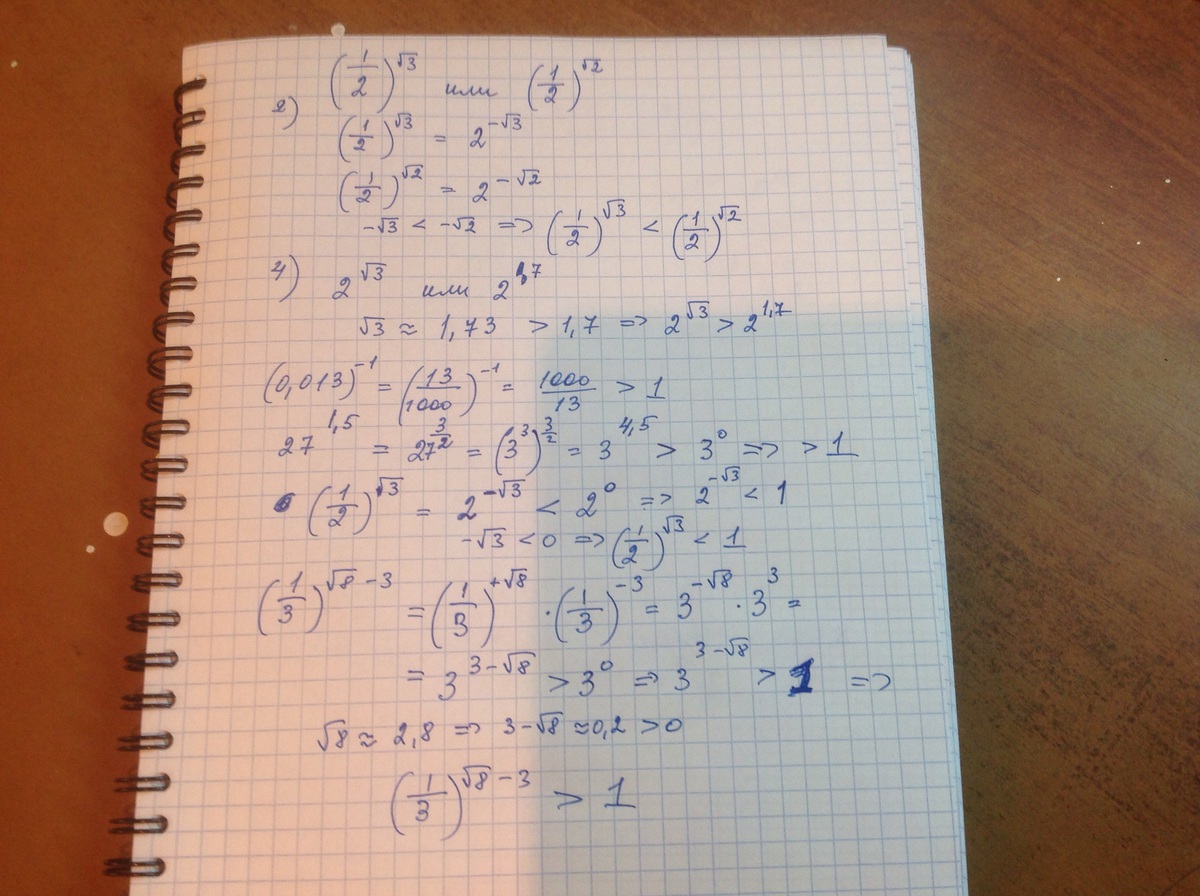 2) (1/2)^√3 или (1/2)^√2
(1/2)^√3 = 2^-√3
(1/2)^√2 = 2^-√2
-√3 < -√2 => (1/2)^√3 < (1/2)^√2
4) 2^√3 или 2^1,7
√3 ≈ 1,73 > 1,7 => 2^√3 > 2^1,7
(0,013)^-1 = (13/1000)^-1 = 1000/13 > 1
27^1,5 = 27^3/2 = (3^3)^3/2 = 3^4,5 > 3^0 => > 1
(1/2)^√3 = 2^-√3 < 2^0 => 2^-√3 < 1
-√3 < 0 => (1/2)^√3 < 1
(1/3)^√8-3 = (1/3)^+√8 · (1/3)^-3 = 3^-√8 · 3^3 =
= 3^3-√8 > 3^0 => 3^3-√8 > 1 =>
√8 ≈ 2,8 => 3-√8 ≈ 0,2 > 0
(1/3)^√8-3 > 1